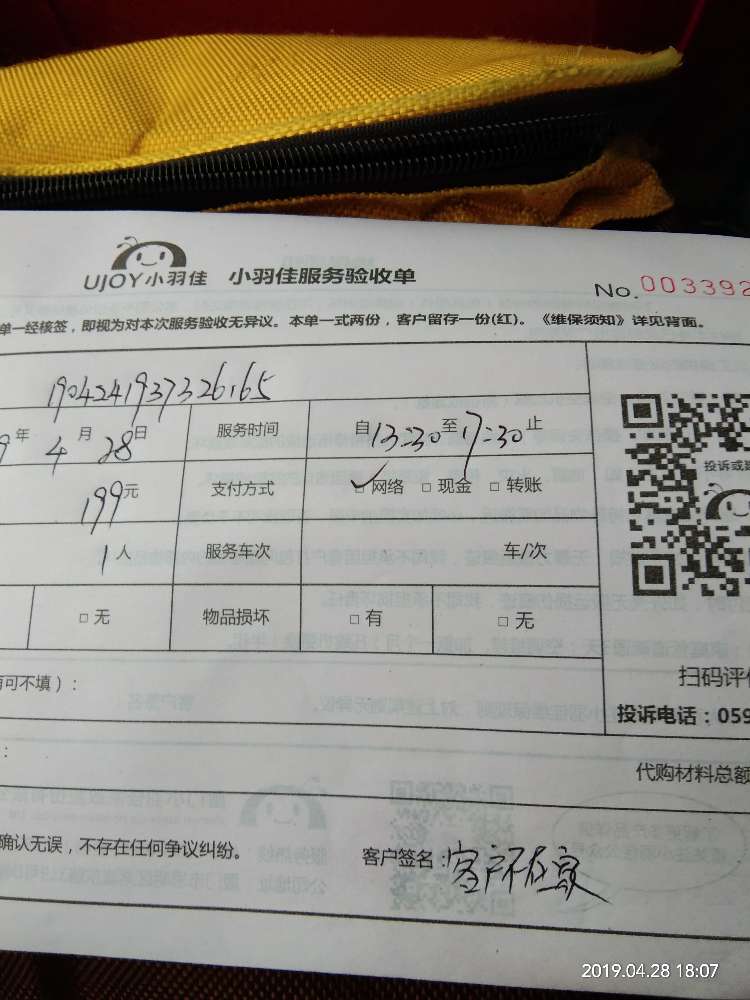 UJOY小羽佳 小羽佳服务验收单
No. 003392
单一经核签，即视为对本次服务验收无异议。本单一式两份，客户留存一份(红)。《维保须知》详见背面。
9年4月28日 服务时间 自13:30至17:30止
199元 支付方式 ☑网络 □现金 □转账
投诉或
1人 服务车次 车/次
□无 物品损坏 □有 □无
可不填）：
扫码评价
投诉电话：059
：
代购材料总额
确认无误，不存在任何争议纠纷。
客户签名：客户不在家
2019.04.28 18:07